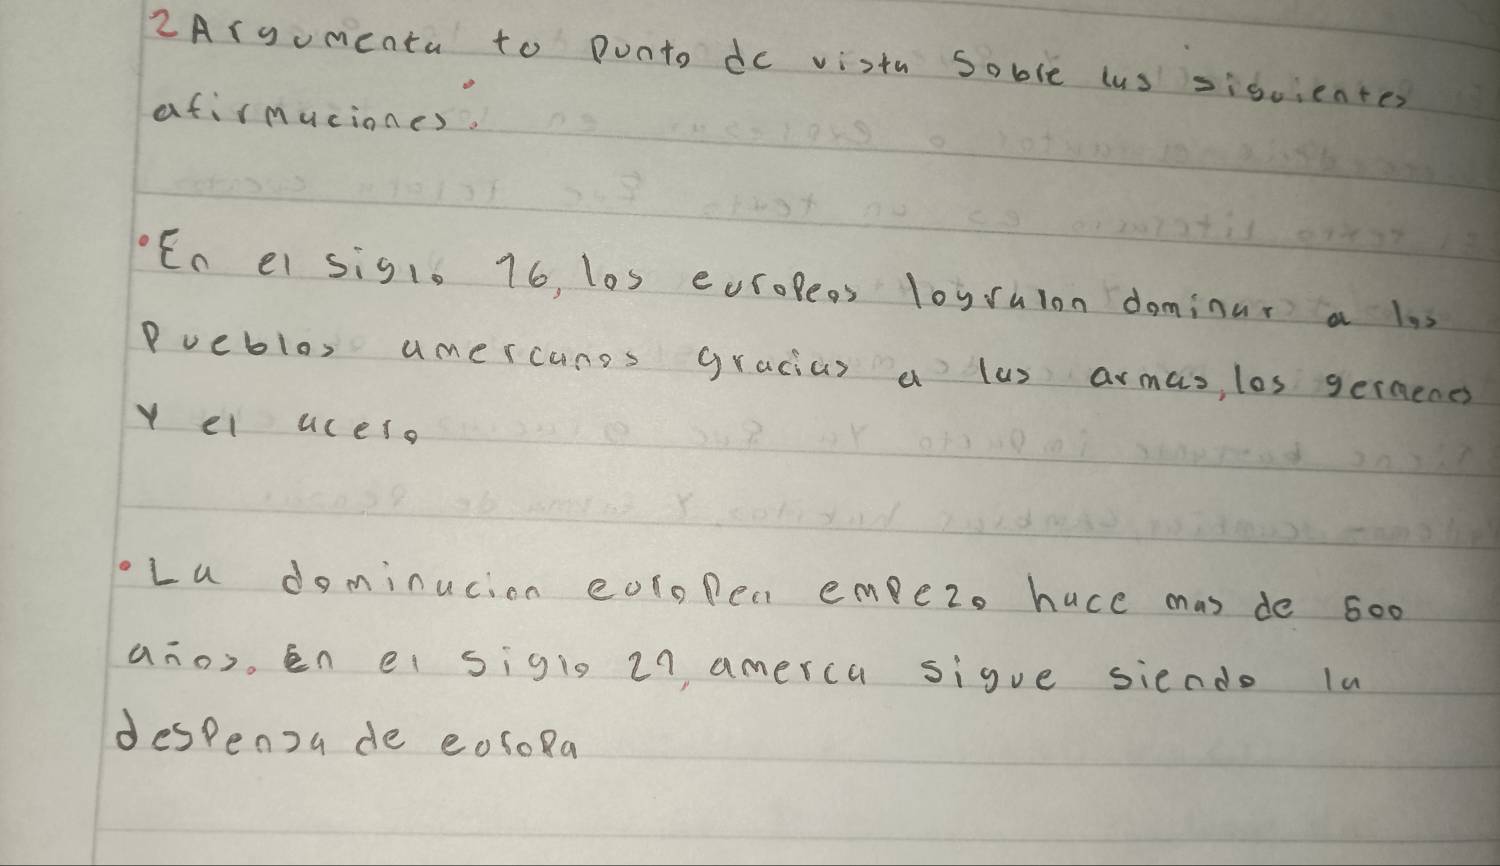 2 Argumenta to punto de vista sobre las siguientes
afirmaciones:
• En el siglo 16, los europeos lograron dominar a los
pueblos amercanos gracias a las armas, los germenes
Y el acero
• La dominacion europea empezo hace mas de 500
años. En el siglo 21, amerca sigue siendo la
despensa de europa